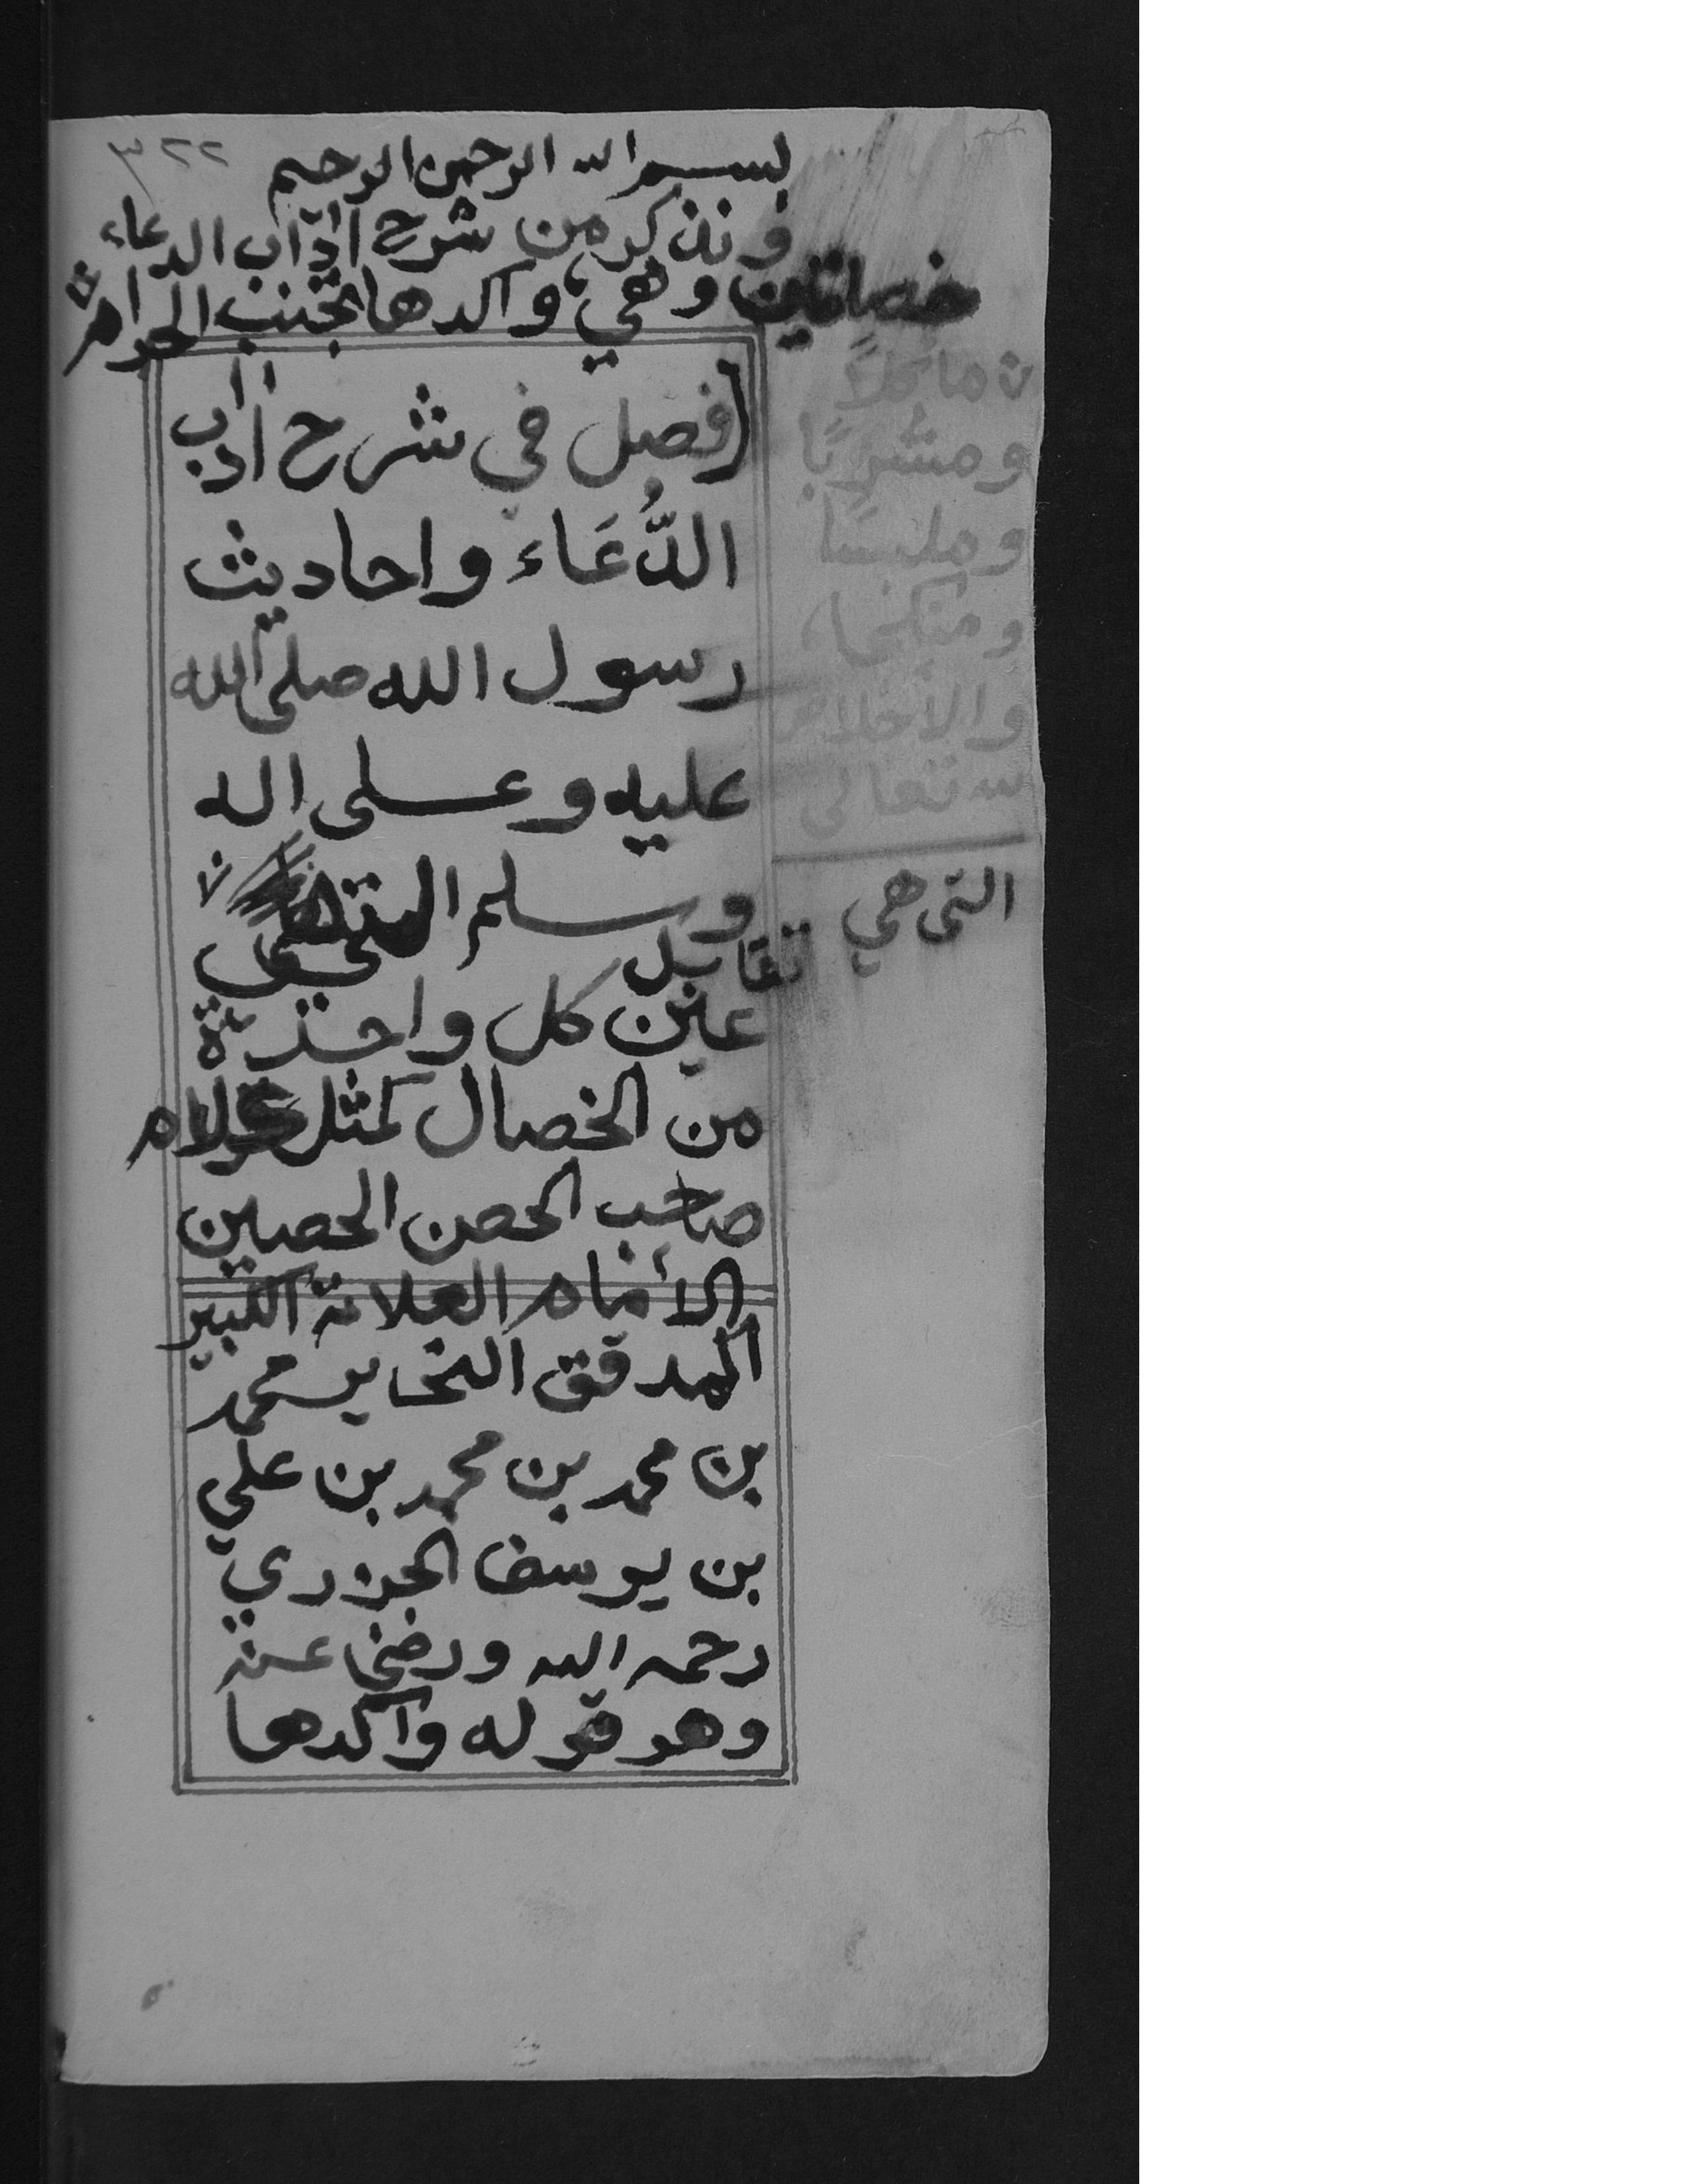 ٣٢٢
بسم الله الرحمن الرحيم
ونذكر من شرح اداب الدعاء
خصلتين وهي واكدها تجنب الحرام
ماكلا
ومشربا
وملبسا
ومنكحا
والاخلاص
لله تعالى
(فصل في شرح اداب
الدُّعَاء واحاديث
رسول الله صلى الله
عليه وعلى اله
وسلم
التي هي
تقابل
عين كل واحدة
من الخصال كمثل كلام
صاحب الحصن الحصين
الامام العلامة الكبير
المدقق النحاير محمد
بن محمد بن محمد بن علي
بن يوسف الجزري
رحمه الله ورضي عنه
وهو قوله واكدها